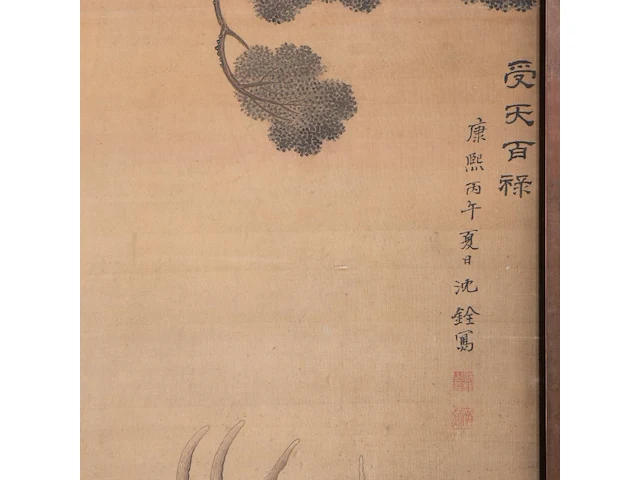 受天百祿
康熙丙午夏日沈銓寫